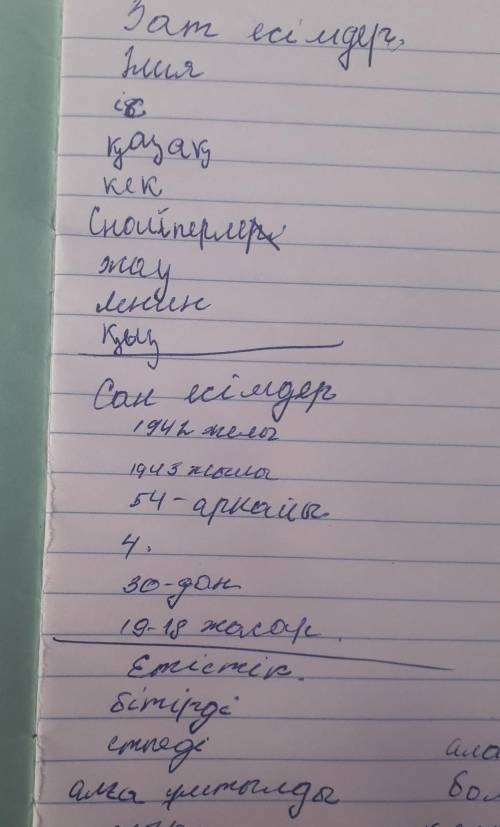 Зат есімдер,
Әлия
іс
қазақ
кек
Снойперлер
жау
ленин
қыз
Сан есімдер
1942 жылы
1943 жылы
54-аркайы
4.
30-дан
19-18 жасар.
Етістік.
бітірді
етпеді
алға ұмтылды
ала
бол